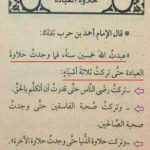 حلاوة العبادة
* قال الإمام أحمد بن حرب رَحِمَهُ اللهُ:
«عبدتُ اللهَ خمسين سنةً، فما وجدتُ حلاوة
العبادة حتَّى تركتُ ثلاثةَ أشياءٍ:
- تركتُ رضى النَّاس حتَّى قدرتُ أن أتكلَّم بالحقِّ.
- وتركتُ صُحبة الفاسقين حتَّى وجدتُ
صحبة الصَّالحين.
- وتركتُ حلاوة الدُّنيا حتَّى وجدتُ حلاوة الآخرة».